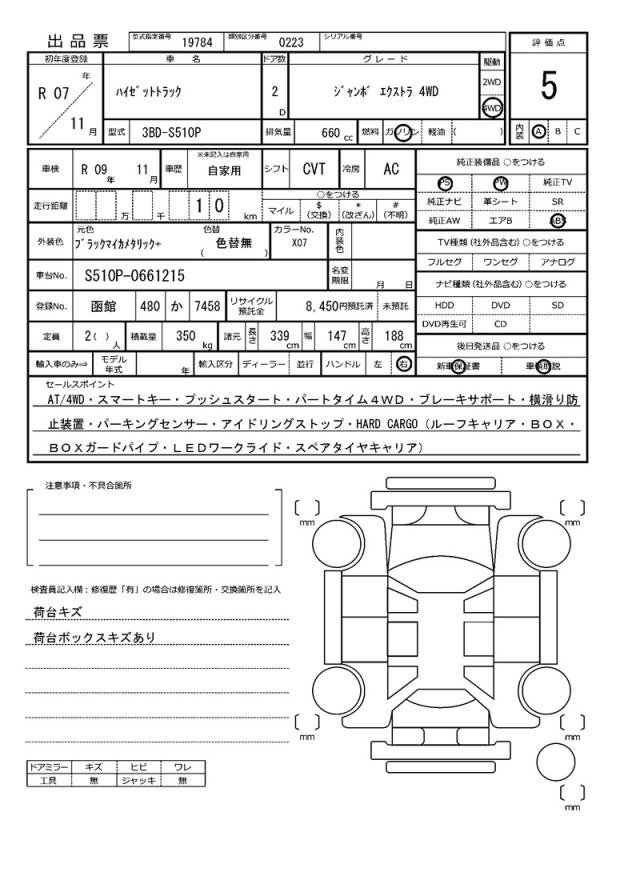 出品票 型式指定番号 19784 類別区分番号 0223 シリアル番号
評価点
5
内装 A B C
初年度登録 車名 ドア数 グレード 駆動
R 07 年 11 月 ﾊｲｾﾞｯﾄﾄﾗｯｸ 2 D ｼﾞｬﾝﾎﾞ ｴｸｽﾄﾗ 4WD 2WD 4WD
型式 3BD-S510P 排気量 660 cc 燃料 ガソリン 軽油 ( )
車検 R 09 年 11 月 車歴 ※未記入は自家用 自家用 シフト CVT 冷房 AC
走行距離 万 千 1 0 km ○をつける
マイル $(交換) *(改ざん) #(不明)
外装色 元色 ﾌﾞﾗｯｸﾏｲｶﾒﾀﾘｯｸ+ 色替 ( 色替無 ) カラーNo. X07 内装色
車台No. S510P-0661215 名変期限 月 日
登録No. 函館 480 か 7458 リサイクル預託金 8,450円預託済 未預託
定員 2( ) 人 積載量 350 kg 諸元 長さ 339 cm 幅 147 cm 高さ 188 cm
輸入車のみ⇒ モデル年式 年 輸入区分 ディーラー 並行 ハンドル 左 右
純正装備品 ○をつける
PS PW 純正TV
純正ナビ 革シート SR
純正AW エアB ABS
TV種類 (社外品含む) ○をつける
フルセグ ワンセグ アナログ
ナビ種類 (社外品含む) ○をつける
HDD DVD SD
DVD再生可 CD
後日発送品 ○をつける
新車保証書 車輌取説
セールスポイント
AT/4WD・スマートキー・プッシュスタート・パートタイム４WD・ブレーキサポート・横滑り防
止装置・パーキングセンサー・アイドリングストップ・HARD CARGO（ルーフキャリア・ＢＯＸ・
ＢＯＸガードパイプ・ＬＥＤワークライド・スペアタイヤキャリア）
注意事項・不具合箇所
検査員記入欄：修復歴「有」の場合は修復箇所・交換箇所を記入
荷台キズ
荷台ボックスキズあり
ドアミラー キズ ヒビ ワレ
工具 無 ジャッキ 無
mm
mm
mm
mm
mm